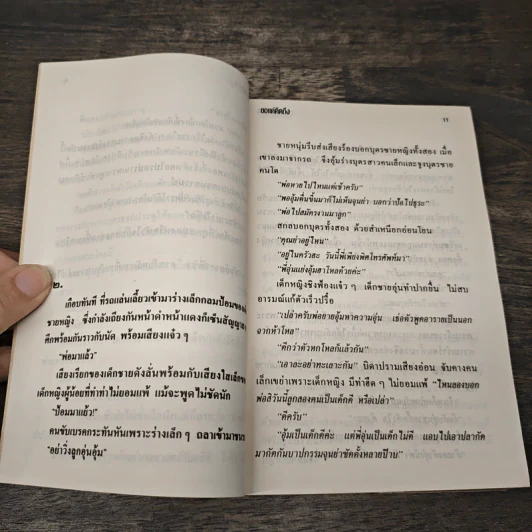 ๒.
เกือบทันที ที่รถแล่นเลี้ยวเข้ามาร่างเล็กกลมป้อมของ
ชายหญิง ซึ่งกำลังเถียงกันหน้าดำหน้าแดงก็เซ็นสัญญาส
ศึกพร้อมกันราวกับนัด พร้อมเสียงแจ้ว ๆ
"พ่อมาแล้ว"
เสียงเรียกของเด็กชายดังลั่นพร้อมกับเสียงใสเล็ก
เด็กหญิงผู้น้องที่ทำท่าไม่ยอมแพ้ แม้จะพูดไม่ชัดนัก
"ป้อมาแล้ว!"
คนขับเบรคกระทันหันเพราะร่างเล็ก ๆ ถลาเข้ามาขน
"อย่าวิ่งลูกอุ่นอุ้ม"
ยอแค่คิดถึง
11
ชายหนุ่มรีบส่งเสียงร้องบอกบุตรชายหญิงทั้งสอง เมื่อ
เขาลงมาจากรถ จึงอุ้มร่างบุตรสาวคนเล็กและจูงบุตรชาย
คนโต
"พ่อหายไปไหนแต่เช้าครับ"
"พออุ้มตื่นขึ้นมาก็ไม่เห็นจุนย่า บอกว่าป้อไปธุระ"
"พ่อไปสมัครงานมาลูก"
สกลบอกบุตรทั้งสอง ด้วยสำเหนียกอ่อนโยน
"คุณย่าอยู่ไหน"
"อยู่ในครัวฮะ วันนี้พี่เพียงพิศโทรศัพท์มา"
"พี่อุ่นแย่งอุ้มฮาโหลด้วยค่ะ"
เด็กหญิงชิงฟ้องแจ้ว ๆ เด็กชายอุ่นทำปากยื่น ไม่สบ
อารมณ์แก้ตัวเร็วปรื๋อ
"เปล่าครับพ่อยายอุ้มหาความอุ่น เธอตัวพูดอาราย​เป็นนอก
จากฮาโหล"
"ดีกว่าตัวยกโหลก็แล้วกัน"
"เอาละอย่าทะเลาะกัน" บิดาปรามเสียงอ่อน จับคางคน
เล็กเขย่าเพราะเด็กหญิง มีท่าฮึด ๆ ไม่ยอมแพ้ "ไหนลองบอก
พ่อสิวันนี้ลูกสองคนเป็นเด็กดี หรือเปล่า"
"ดีครับ"
"อุ้มเป็นเด็กดีค่ะ แต่พี่อุ่นเป็นเด็กไม่ดี แอบไปเอาปลากัด
มากัดกันบาปกรรมจุนย่าซัดตั้งหลายป้าบ"